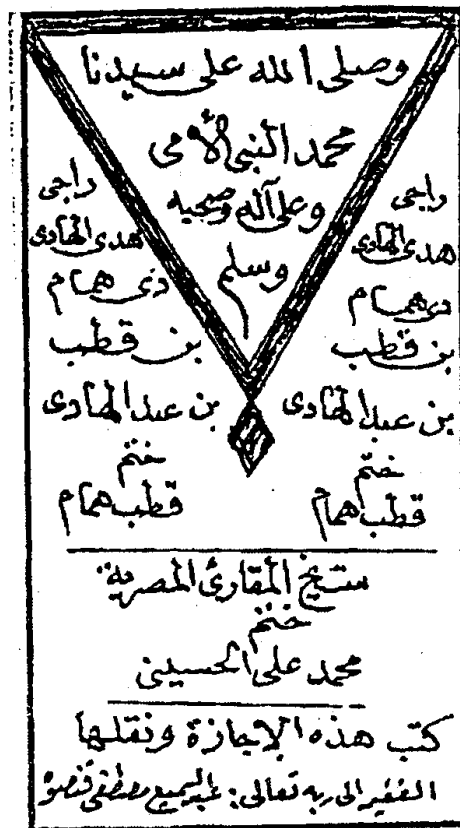 وصلى الله على سيدنا
محمد النبي الأمى
وعلى آله وصحبه
وسلم
راجى
هدى الهادى
ذى همام
بن قطب
بن عبد الهادى
ختم
قطب همام
راجى
هدى الهادى
ذى همام
بن قطب
بن عبد الهادى
ختم
قطب همام
شيخ المقارئ المصرية
ختم
محمد على الحسينى
كتب هذه الإجازة ونقلها
الفقير الى ربه تعالى: عبد السميع مصطفى